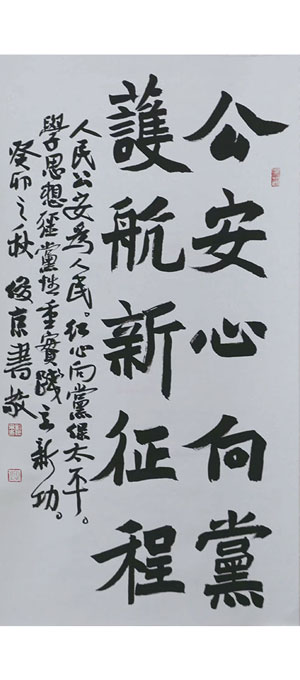 公安心向黨
護航新征程
人民公安為人民。红心向黨保太平。
學思想强黨性重實踐立新功。
癸卯之秋 俊京書敬